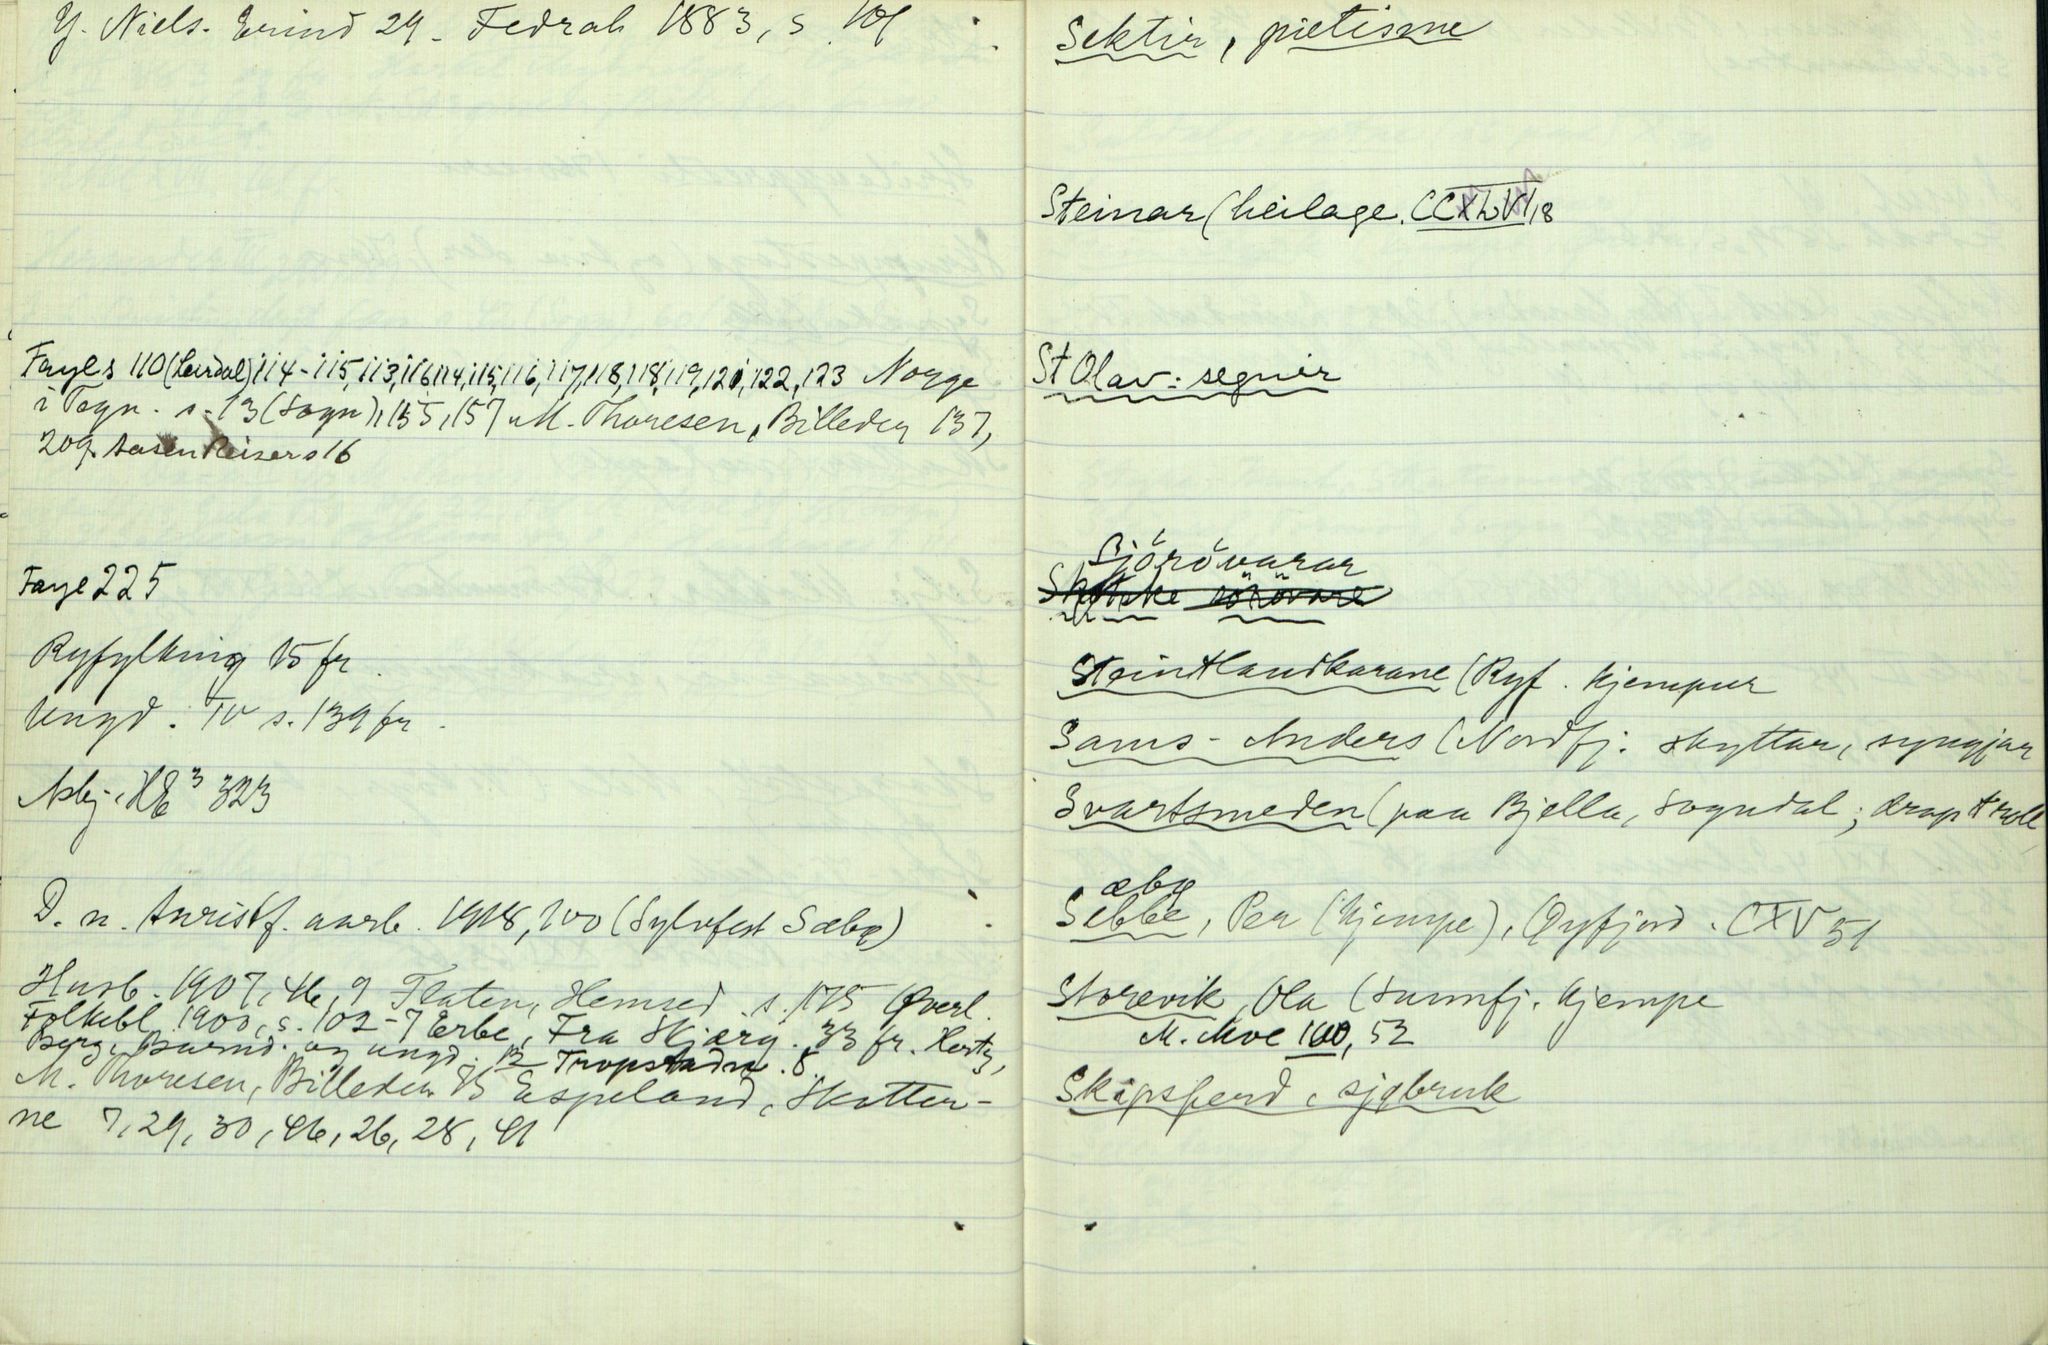 Y. Niels. Erind 29 - Fedrah 1883, s. 101
Fayes 110 (Leirdal) 114-115, 113, 116, 114, 115, 116, 117, 118, 118, 119, 121, 122, 123 Norge
i Tegn. s. 13 (Sogn), 155, 157 M. Thoresen, Billeder 137,
209. Aasen Reiser s 16
Faye 225
Ryfylking 15 fr.
Ungd. IV s. 139 fr.
Asbj. HE³ 323
D. n. turistf. aarb. 1918, 100 (Sylvfest Sæbø)
Husb. 1907, 46, 9 Flaten, Hemsed. s. 175 Øverl.
Folkebl. 1900, s. 102-7 Erbe, Fra Skjærg. 33 fr. Hertz,
Berg, Barnd. og ungd. 12 8.
M. Thoresen, Billeder 85 Espeland, Skotter-
ne 7, 29, 30, 46, 26, 28, 41
Sektir, pietisme
Steinar (heilage. CCXLVI, 18
St Olav-segner
Sjörövarar
Skotske sörövare
Steintlandkarane (Ryf. kjempur
Sams-Anders (Nordfj. skyttar, syngjar
Svartsmeden (paa Bjella, Sogndal; drap troll
æbø
Sebbe, Per (kjempe), Øyfjord. CXV 51
Storevik, Ola (Sunnfj. kjempe
M. Moe 100, 52
Skipsferd, sjøbruk